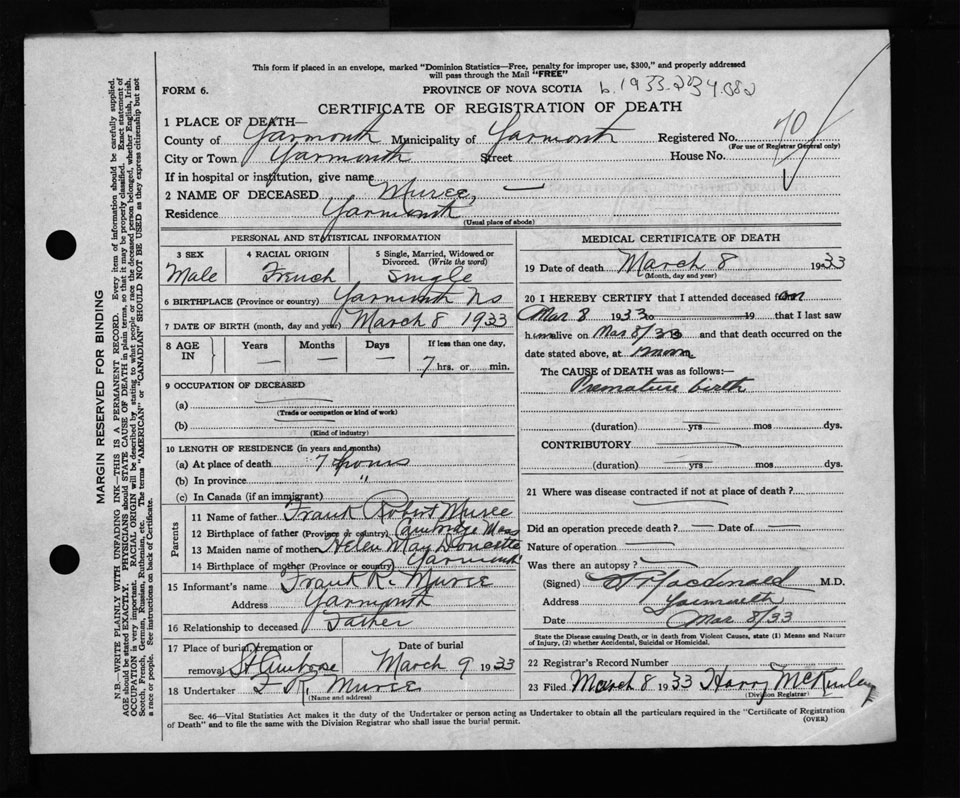 This form if placed in an envelope, marked "Dominion Statistics—Free, penalty for improper use, $300," and properly addressed
will pass through the Mail "FREE"
FORM 6.
PROVINCE OF NOVA SCOTIA
CERTIFICATE OF REGISTRATION OF DEATH
1 PLACE OF DEATH—
County of Yarmouth Municipality of Yarmouth Registered No. 70
(For use of Registrar General only)
City or Town Yarmouth Street House No.
If in hospital or institution, give name —
2 NAME OF DECEASED Muree,
Residence Yarmouth
(Usual place of abode)
PERSONAL AND STATISTICAL INFORMATION
3 SEX
Male
4 RACIAL ORIGIN
French
5 Single, Married, Widowed or
Divorced. (Write the word)
Single
6 BIRTHPLACE (Province or country) Yarmouth NS
7 DATE OF BIRTH (month, day and year) March 8 1933
8 AGE IN
Years —
Months —
Days —
If less than one day,
7 hrs. or min.
9 OCCUPATION OF DECEASED
(a)
(Trade or occupation or kind of work)
(b)
(Kind of industry)
10 LENGTH OF RESIDENCE (in years and months)
(a) At place of death 7 hours
(b) In province "
(c) In Canada (if an immigrant)
Parents
11 Name of father Frank Robert Muree
12 Birthplace of father (Province or country) Cambridge Mass
13 Maiden name of mother Helen May
14 Birthplace of mother (Province or country) Yarmouth
15 Informant's name Frank R. Muree
Address Yarmouth
16 Relationship to deceased Father
17 Place of burial, cremation or Date of burial
removal St Ambrose March 9 1933
18 Undertaker F R. Muree
(Name and address)
MEDICAL CERTIFICATE OF DEATH
19 Date of death March 8 1933
(Month, day and year)
20 I HEREBY CERTIFY that I attended deceased from
Mar 8 1933 to 19 that I last saw
him alive on Mar 8/33 and that death occurred on
date stated above, at m.
The CAUSE of DEATH was as follows:—
Premature birth
(duration) yrs mos dys.
CONTRIBUTORY
(duration) yrs mos dys.
21 Where was disease contracted if not at place of death?
Did an operation precede death? — Date of —
Nature of operation —
Was there an autopsy?
(Signed) Macdonald M.D.
Address Yarmouth
Date Mar 8/33
State the Disease causing Death, or in death from Violent Causes, state (1) Means and Nature
of Injury, (2) whether Accidental, Suicidal or Homicidal.
22 Registrar's Record Number
23 Filed March 8 1933 Harry McKinlay
(Division Registrar)
Sec. 46—Vital Statistics Act makes it the duty of the Undertaker or person acting as Undertaker to obtain all the particulars required in the "Certificate of Registration
of Death" and to file the same with the Division Registrar who shall issue the burial permit.
(OVER)
MARGIN RESERVED FOR BINDING
N.B.—WRITE PLAINLY WITH UNFADING INK—THIS IS A PERMANENT RECORD. Every item of information should be carefully supplied.
AGE should be stated EXACTLY. PHYSICIANS should STATE CAUSE OF DEATH in plain terms, so that it may be properly classified. Exact statement of
OCCUPATION is very important. RACIAL ORIGIN will be described by stating to what people or race the deceased person belonged, whether English, Irish,
Scotch, French, German, Russian, Ruthenian, etc. The terms "AMERICAN" or "CANADIAN" SHOULD NOT BE USED as they express citizenship but not
a race or people. See instructions on back of Certificate.